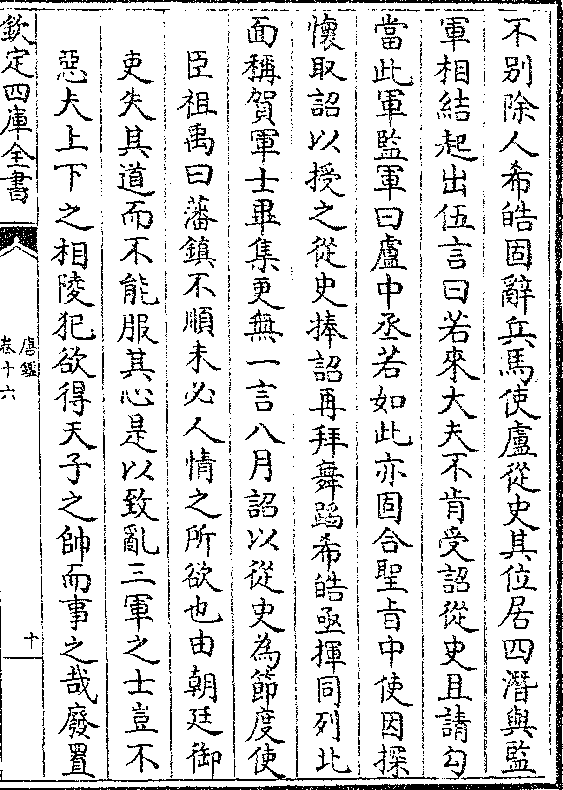 不别除人希皓固辭兵馬使盧從史其位居四潛與監
軍相結起出伍言曰若來大夫不肯受詔從史且請勾
當此軍監軍曰盧中丞若如此亦固合聖㫖中使因探
懷取詔以授之從史捧詔再拜舞蹈希皓亟揮同列北
面稱賀軍士畢集更無一言八月詔以從史為節度使
臣祖禹曰藩鎮不順未必人情之所欲也由朝廷御
吏失其道而不能服其心是以致亂三軍之士豈不
惡夫上下之相陵犯欲得天子之帥而事之哉廢置
欽定四庫全書
唐鑑
卷十六
十